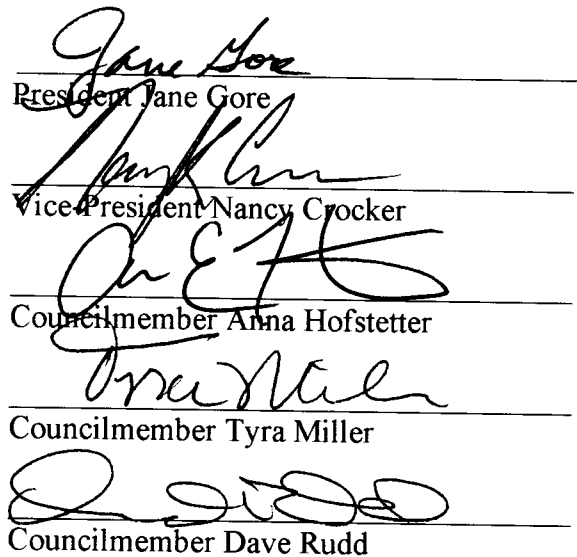 Jane Gore
President Jane Gore
Vice-President Nancy Crocker
Councilmember Anna Hofstetter
Councilmember Tyra Miller
Councilmember Dave Rudd